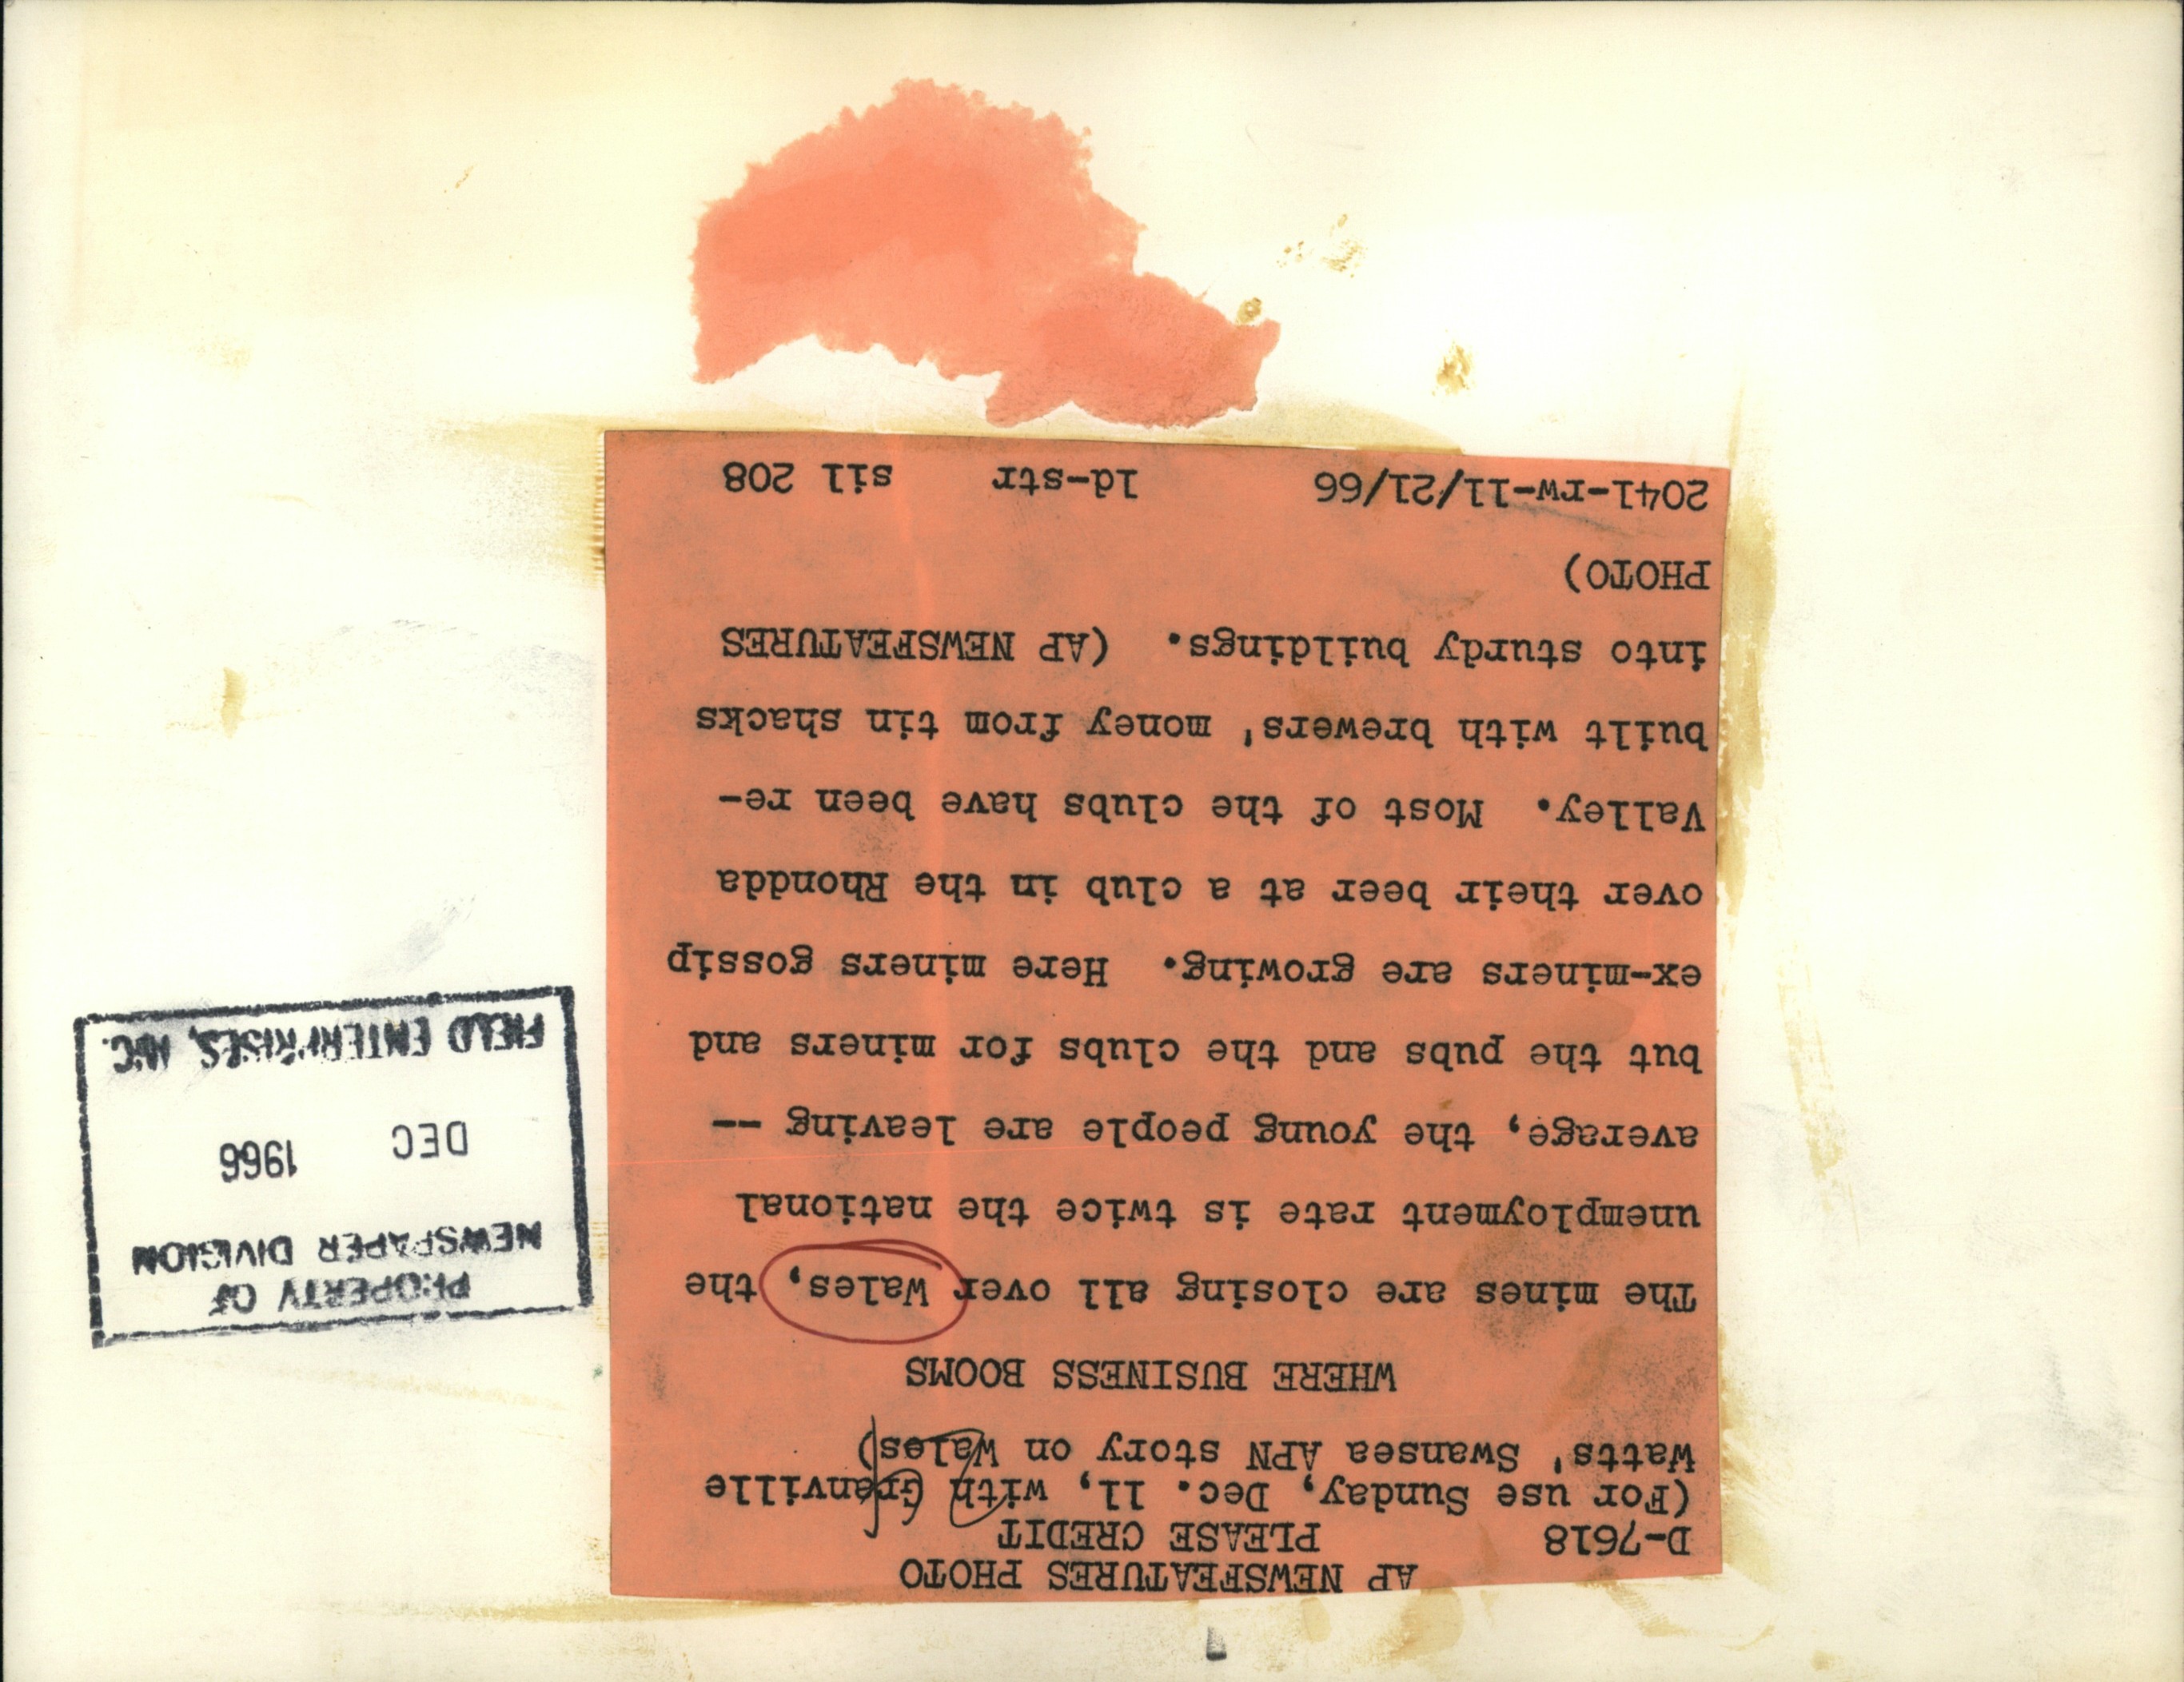 AP NEWSFEATURES PHOTO
D-7618 PLEASE CREDIT
(For use Sunday, Dec. 11, with Grenville
Watts' Swansea APN story on Wales)
WHERE BUSINESS BOOMS
The mines are closing all over Wales, the
unemployment rate is twice the national
average, the young people are leaving --
but the pubs and the clubs for miners and
ex-miners are growing. Here miners gossip
over their beer at a club in the Rhondda
Valley. Most of the clubs have been re-
built with brewers' money from tin shacks
into sturdy buildings. (AP NEWSFEATURES
PHOTO)
2041-rw-11/21/66 ld-str sil 208
PROPERTY OF
NEWSPAPER DIVISION
DEC 1966
FIELD ENTERPRISES, INC.